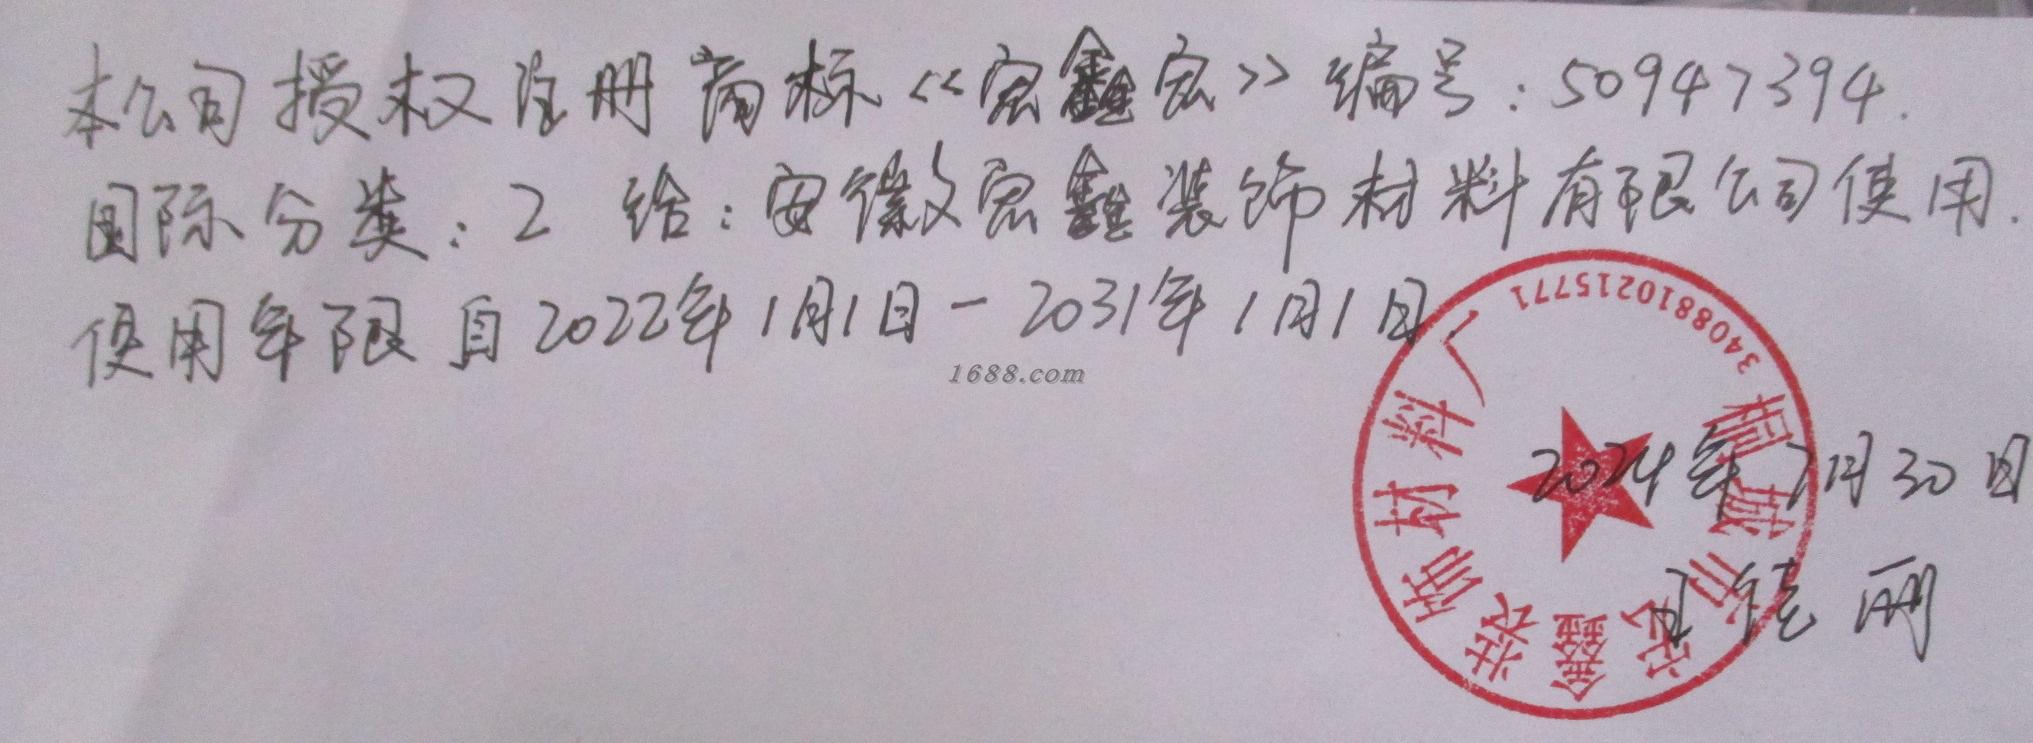 本公司授权注册商标《宏鑫宏》编号:50947394.
国际分类:2 给:安徽宏鑫装饰材料有限公司使用.
使用年限自2022年1月1日-2031年1月1日.
1688.com
3408810215771
桐城市宏鑫装饰材料厂
2024年7月30日